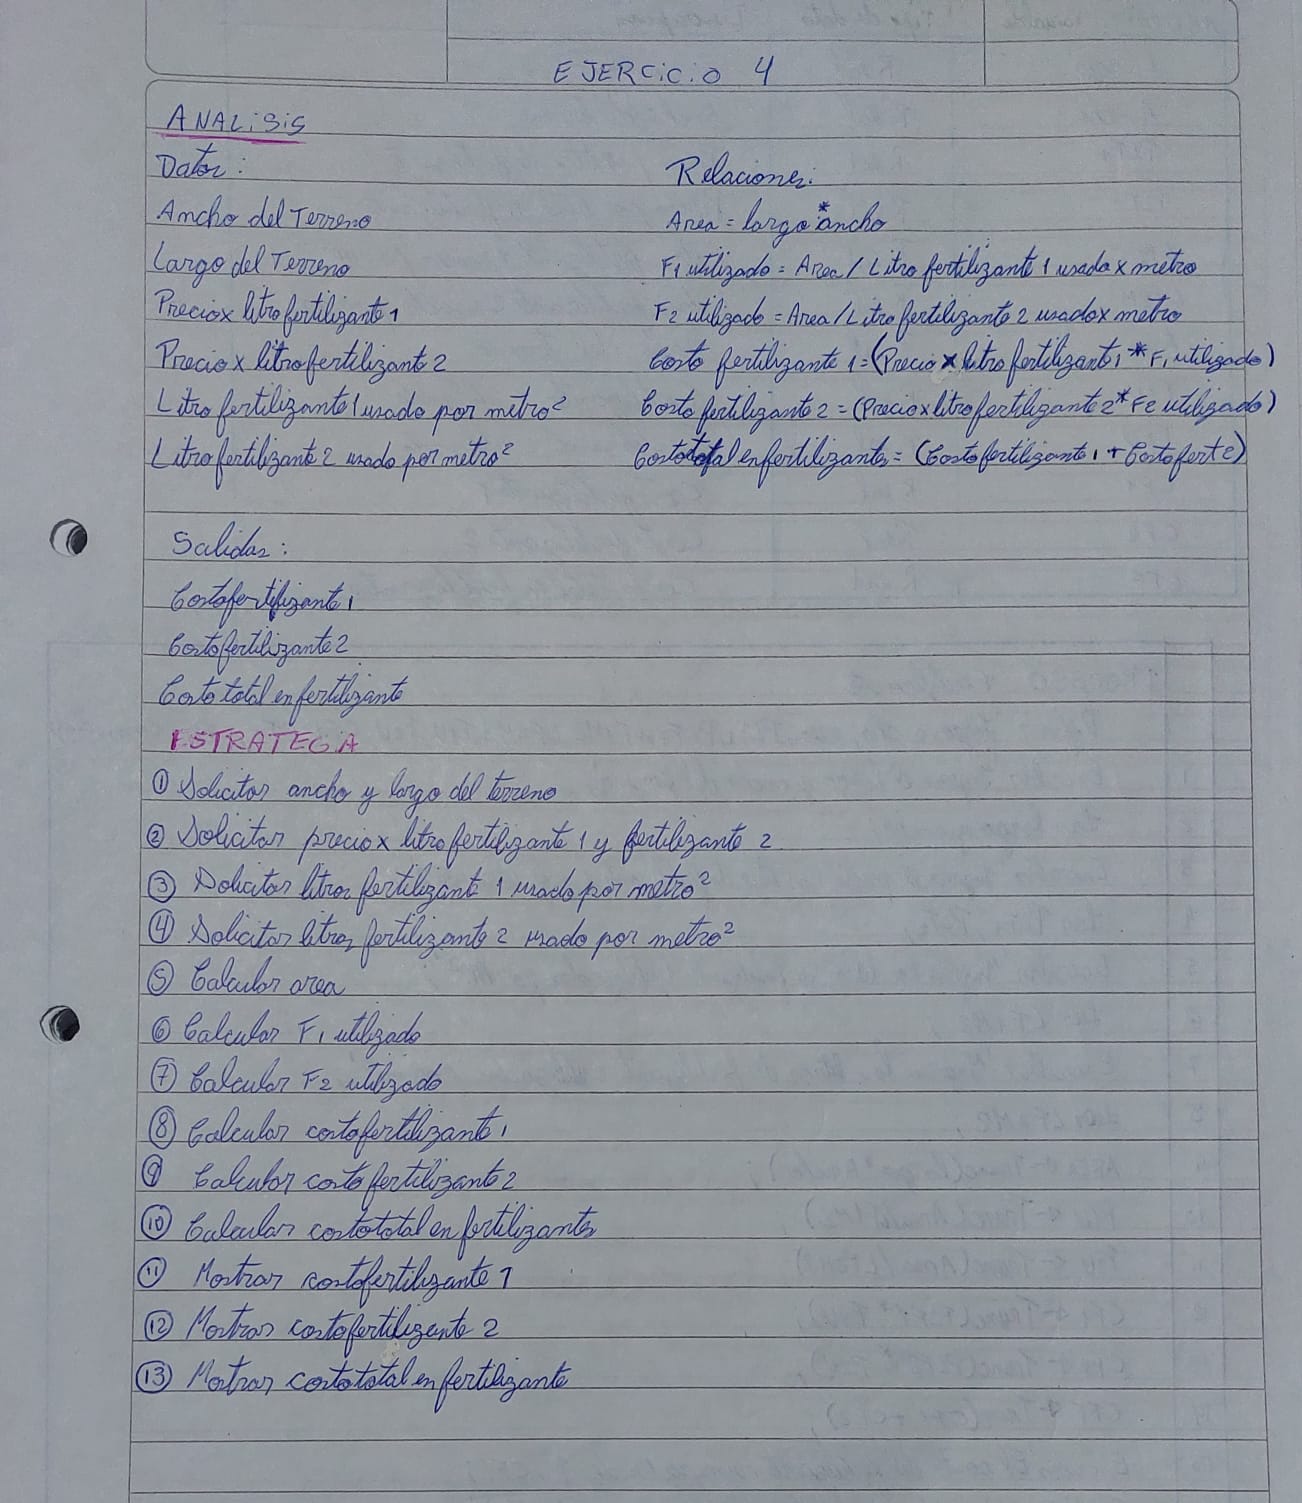 EJERCiCiO 4
ANALiSiS
Datos:
Ancho del Terreno
Largo del Terreno
Preciox litro fertilizante 1
Precio x litro fertilizante 2
Litro fertilizante 1 usado por metro²
Litro fertilizante 2 usado por metro²
Relaciones:
Area = largo * ancho
F1 utilizado = Area / Litro fertilizante 1 usado x metro
F2 utilizado = Area / Litro fertilizante 2 usado x metro
Costo fertilizante 1 = (Precio x litro fertilizante 1 * F1 utilizado)
Costo fertilizante 2 = (Precio x litro fertilizante 2 * F2 utilizado)
Costo total en fertilizantes = (Costo fertilizante 1 + Costo fert 2)
Salidas:
Costo fertilizante 1
Costo fertilizante 2
Costo total en fertilizante
ESTRATEGiA
① Solicitar ancho y largo del terreno
② Solicitar precio x litro fertilizante 1 y fertilizante 2
③ Solicitar litros fertilizante 1 usado por metro²
④ Solicitar litros fertilizante 2 usado por metro²
⑤ Calcular area
⑥ Calcular F1 utilizado
⑦ Calcular F2 utilizado
⑧ Calcular costo fertilizante 1
⑨ Calcular costo fertilizante 2
⑩ Calcular costo total en fertilizantes
⑪ Mostrar costo fertilizante 1
⑫ Mostrar costo fertilizante 2
⑬ Mostrar costo total en fertilizante